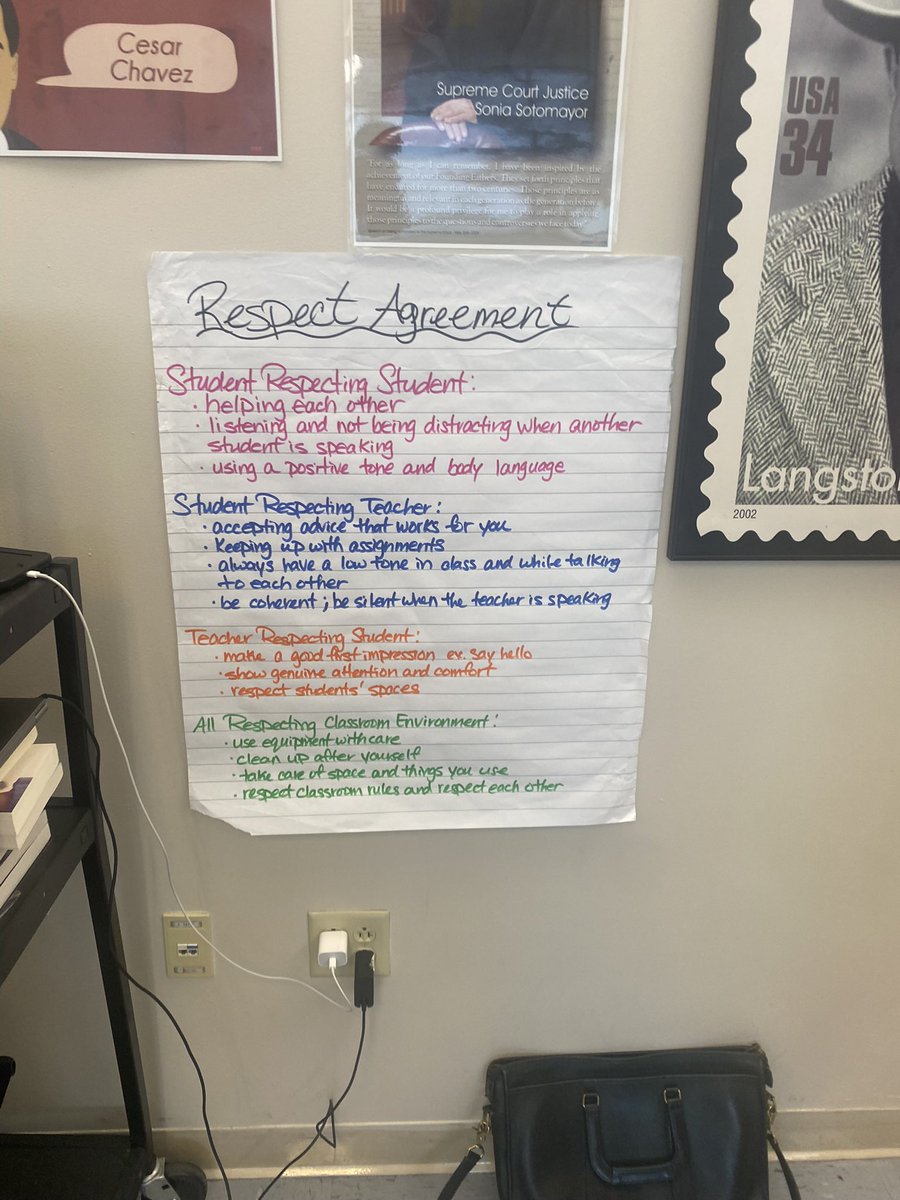 Cesar
Chavez
Supreme Court Justice
Sonia Sotomayor
"For as long as I can remember, I have been inspired by the
achievement of our Founding Fathers. They set forth principles that
have endured for more than two centuries. Those principles are as
meaningful and relevant in each generation as the generation before.
It would be a profound privilege for me to play a role in applying
those principles to the questions and controversies we face today."
USA
34
Langsto
2002
Respect Agreement
Student Respecting Student:
· helping each other
· listening and not being distracting when another
student is speaking
· using a positive tone and body language
Student Respecting Teacher:
· accepting advice that works for you
· Keeping up with assignments
· always have a low tone in class and while talking
to each other
· be coherent ; be silent when the teacher is speaking
Teacher Respecting Student:
· make a good first impression ex. say hello
· show genuine attention and comfort
· respect students' spaces
All Respecting Classroom Environment:
· use equipment with care
· clean up after yourself
· take care of space and things you use
· respect classroom rules and respect each other